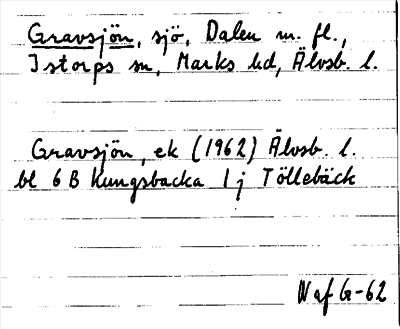 Gravsjön, sjö, Dalen m. fl.,
Istorps sn, Marks hd, Älvsb. l.
Gravsjön, ek (1962) Älvsb. l.
bl 6 B Kungsbacka 1 j Töllebäck
Waf G-62